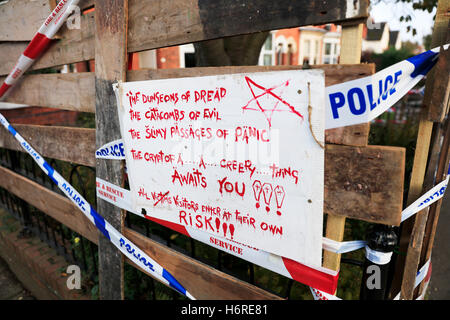 FIRE & RESCUE
SERVICE
POLICE
POLICE
THE DUNGEONS OF DREAD
THE CATICOMBS OF EVIL
THE SLIMY PASSAGES OF PANIC
THE CRYPT OF A....A....CREEPY....THING
AWAITS YOU !!!
ALL VISITORS ENTER AT THEIR OWN
RISK!!!
FIRE & RESCUE
SERVICE
SERVICE
POLICE
POLICE
alamy